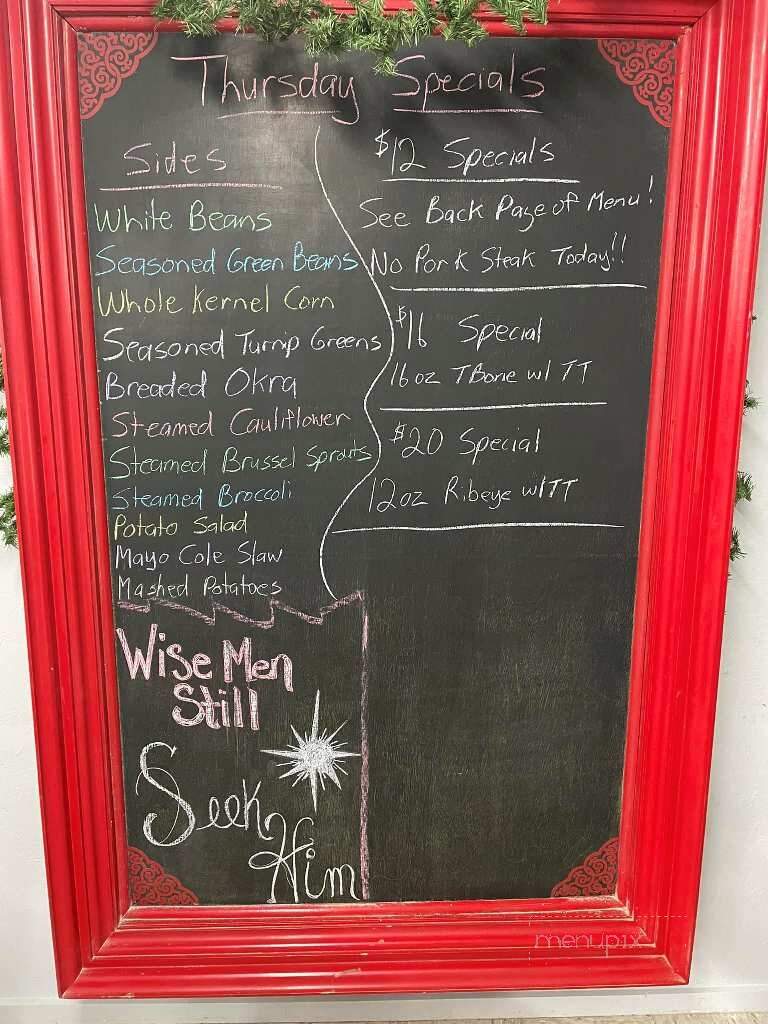 Thursday Specials
Sides
White Beans
Seasoned Green Beans
Whole Kernel Corn
Seasoned Turnip Greens
Breaded Okra
Steamed Cauliflower
Steamed Brussel Sprouts
Steamed Broccoli
Potato Salad
Mayo Cole Slaw
Mashed Potatoes
$12 Specials
See Back Page of Menu!
No Pork Steak Today!!
$16 Special
16oz TBone w/ TT
$20 Special
12oz Ribeye w/TT
Wise Men
Still
Seek
Him
menupix